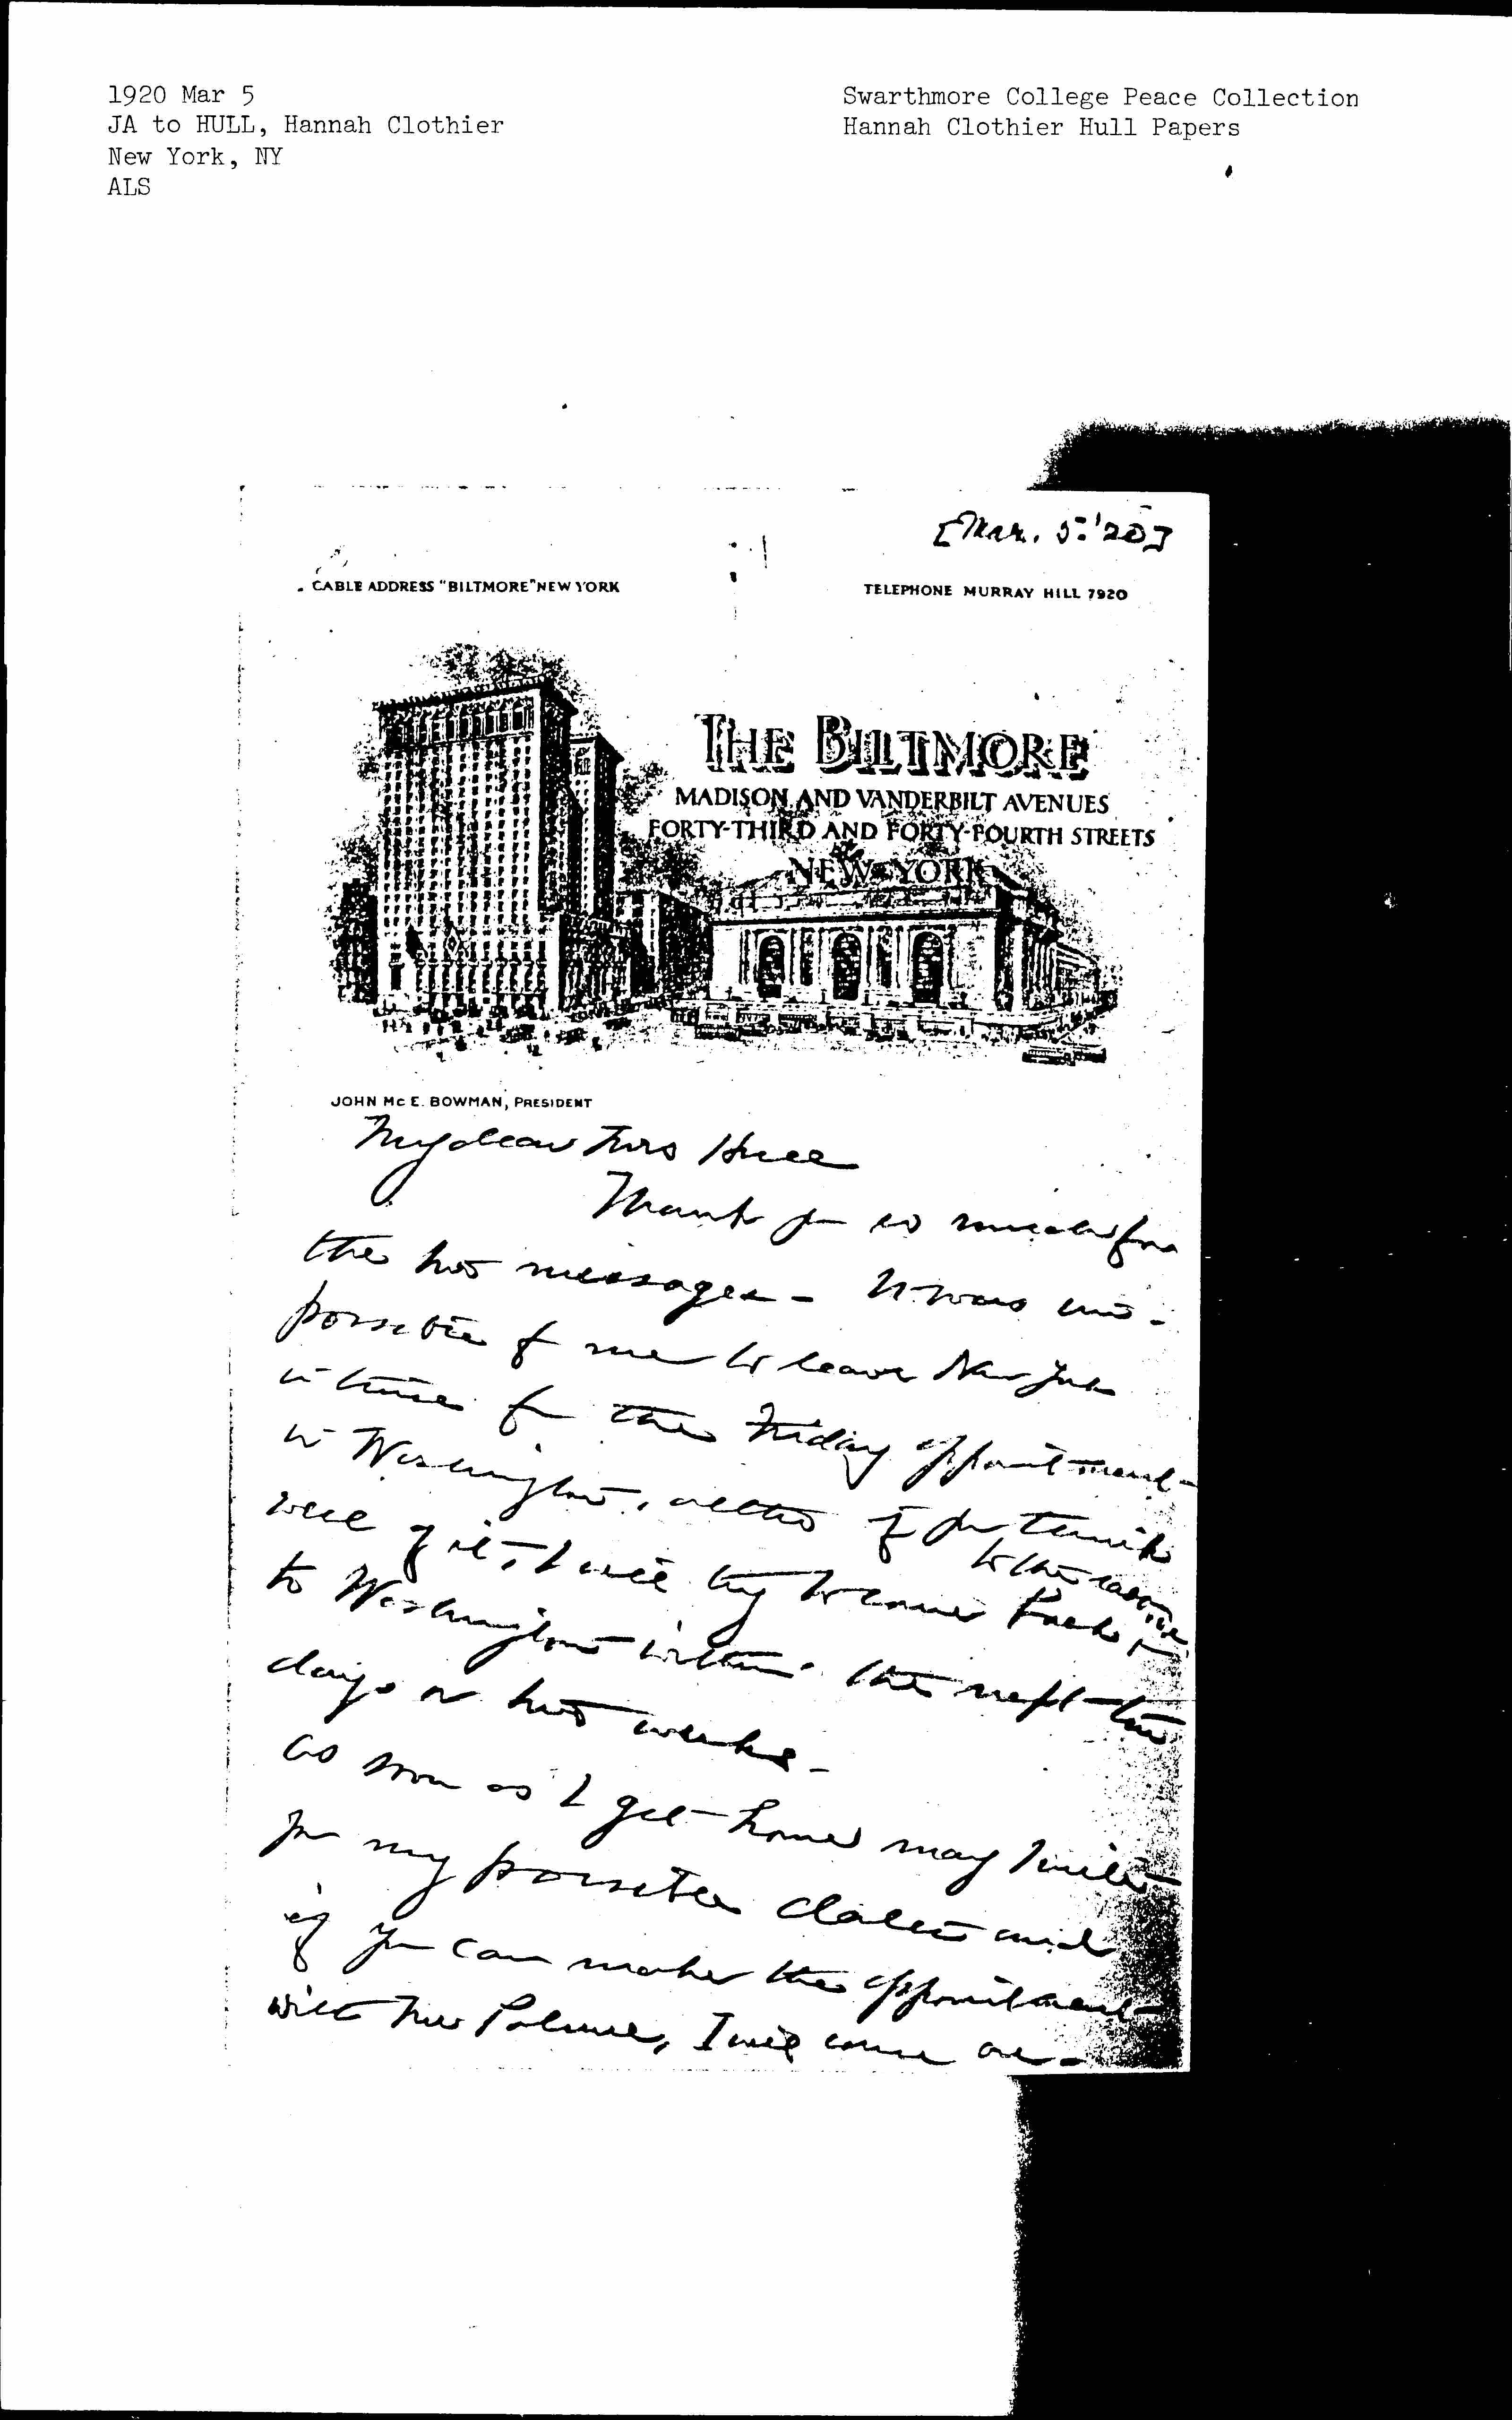 1920 Mar 5
JA to HULL, Hannah Clothier
New York, NY
ALS
Swarthmore College Peace Collection
Hannah Clothier Hull Papers
[Mar. 5. '20]
CABLE ADDRESS "BILTMORE" NEW YORK
TELEPHONE MURRAY HILL 7920
THE BILTMORE
MADISON AND VANDERBILT AVENUES
FORTY-THIRD AND FORTY-FOURTH STREETS
NEW YORK
JOHN MC E. BOWMAN, PRESIDENT
My dear Mrs Hull
Thank you so much for
the two messages - It was im-
possible for me to leave New York
in time for the Friday appointment
in Washington, altho if you think
well of it, I will try to come back
to the
to Washington within the next ten
days or two weeks -
As soon as I get home may I write
you my possible dates and
if you can make the appointment
with Palmer, I will come on -